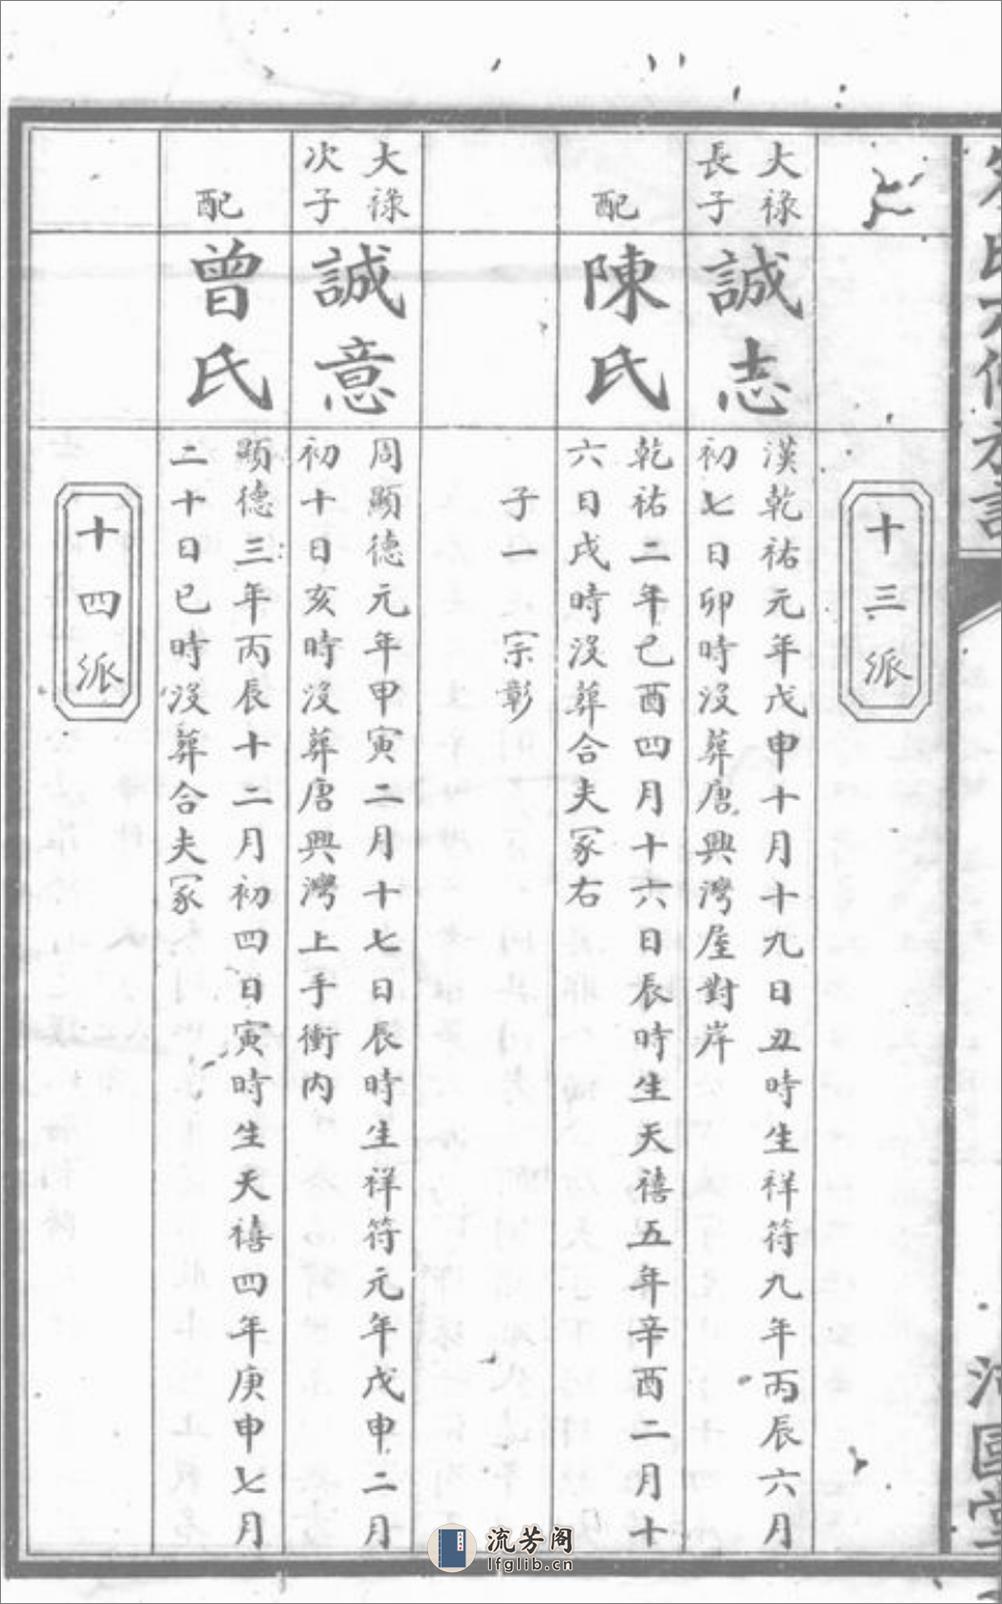 十三派
大祿
長子
誠志
漢乾祐元年戊申十月十九日丑時生祥符九年丙辰六月
初七日卯時沒葬唐興灣屋對岸
配
陳氏
乾祐二年己酉四月十六日辰時生天禧五年辛酉二月十
六日戌時沒葬合夫冢右
子一 宗彰
大祿
次子
誠意
周顯德元年甲寅二月十七日辰時生祥符元年戊申二月
初十日亥時沒葬唐興灣上手衝內
配
曾氏
顯德三年丙辰十二月初四日寅時生天禧四年庚申七月
二十日巳時沒葬合夫冢
十四派
流芳阁
lfglib.cn